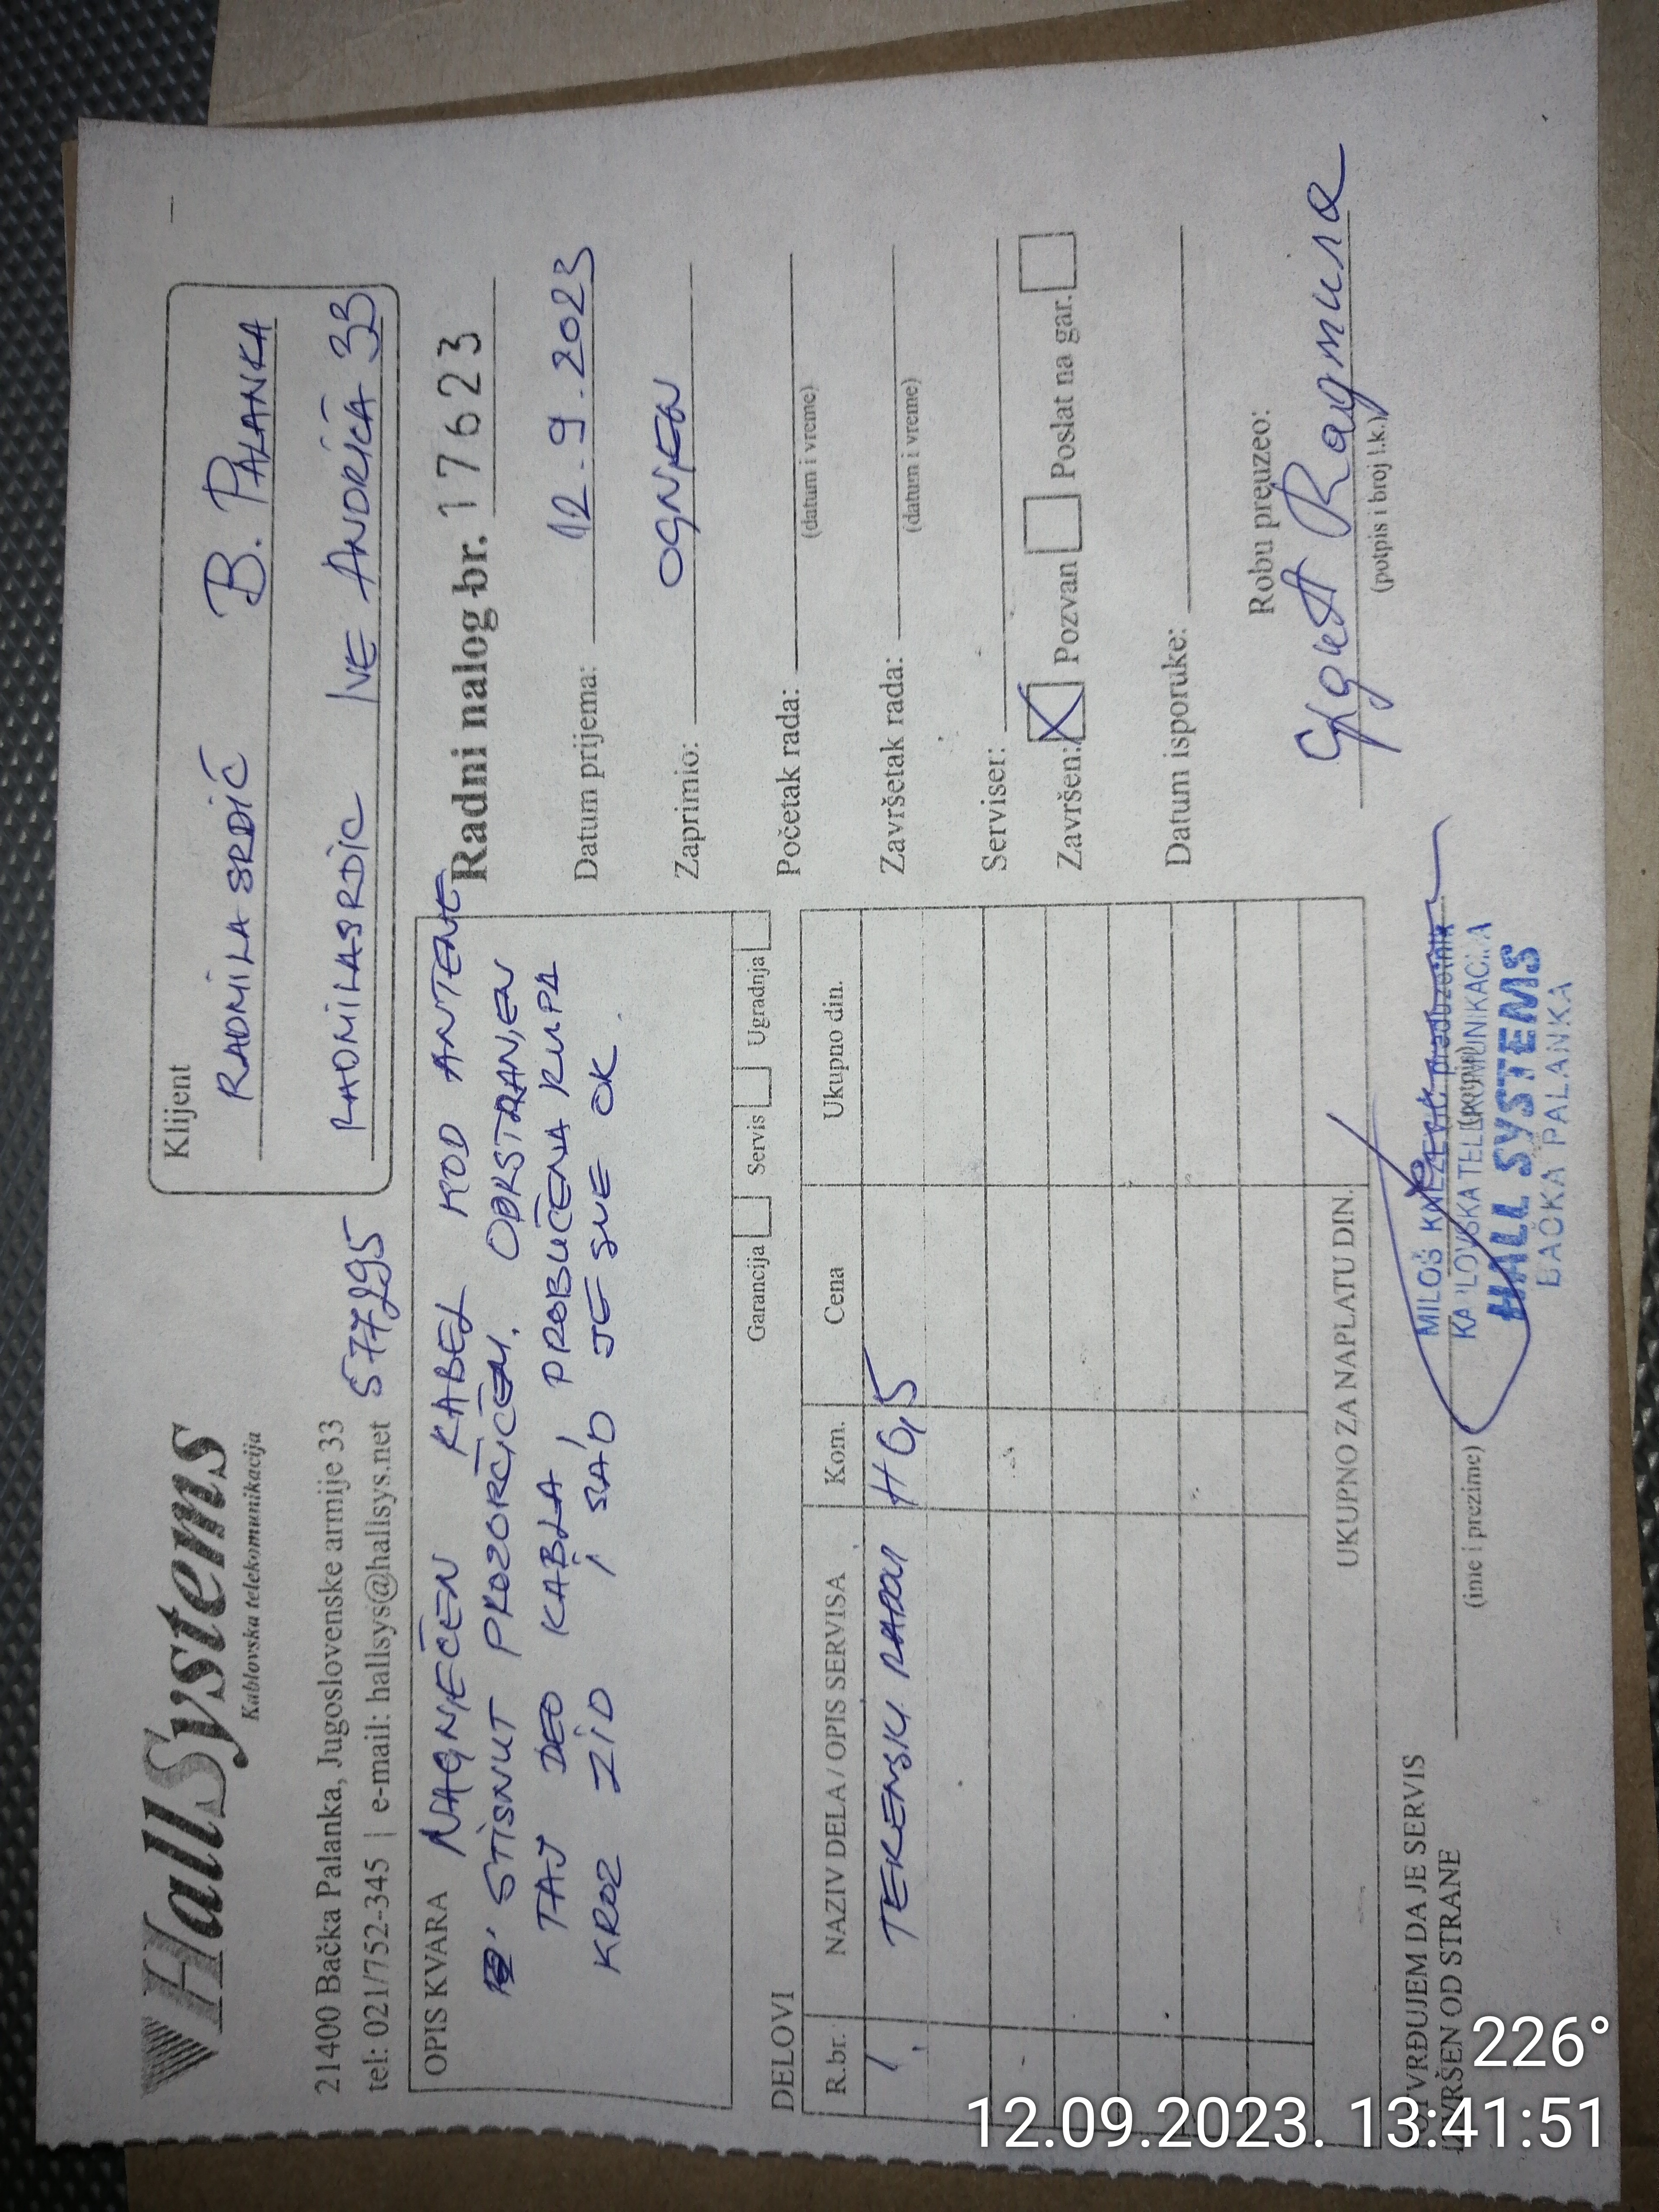 HallSystems
Kablovska telekomunikacija
21400 Bačka Palanka, Jugoslovenske armije 33
tel: 021/752-345 | e-mail: hallsys@hallsys.net
577295
Klijent
RADMILA SRDIĆ B. PALANKA
RADMILASRDIC IVE ANDRIĆA 33
OPIS KVARA
NAGNJEČEN KABEL KOD ANTENE
STISNUT PROZORČIĆEM. ODKSTRANJEN
TAJ DEO KABLA, PROBUČENA RUPA
KROZ ZID I SAD JE SVE OK.
Garancija Servis Ugradnja
Radni nalog br. 17623
Datum prijema: 12.9.2023
Zaprimio: OGNJEN
Početak rada:
(datum i vreme)
Završetak rada:
(datum i vreme)
Serviser:
Završen: X Pozvan Poslat na gar.
Datum isporuke:
Robu preuzeo:
Радмила
(potpis i broj l.k.)
DELOVI
R.br. NAZIV DELA / OPIS SERVISA Kom. Cena Ukupno din.
1. TERENSKI RADOVI H 0,5
UKUPNO ZA NAPLATU DIN.
POTVRĐUJEM DA JE SERVIS
IZVRŠEN OD STRANE
(ime i prezime)
MILOŠ KNEŽEVIĆ preduzetnik
KABLOVSKA TELEKOMUNIKACIJA
HALL SYSTEMS
BAČKA PALANKA
226°
12.09.2023. 13:41:51